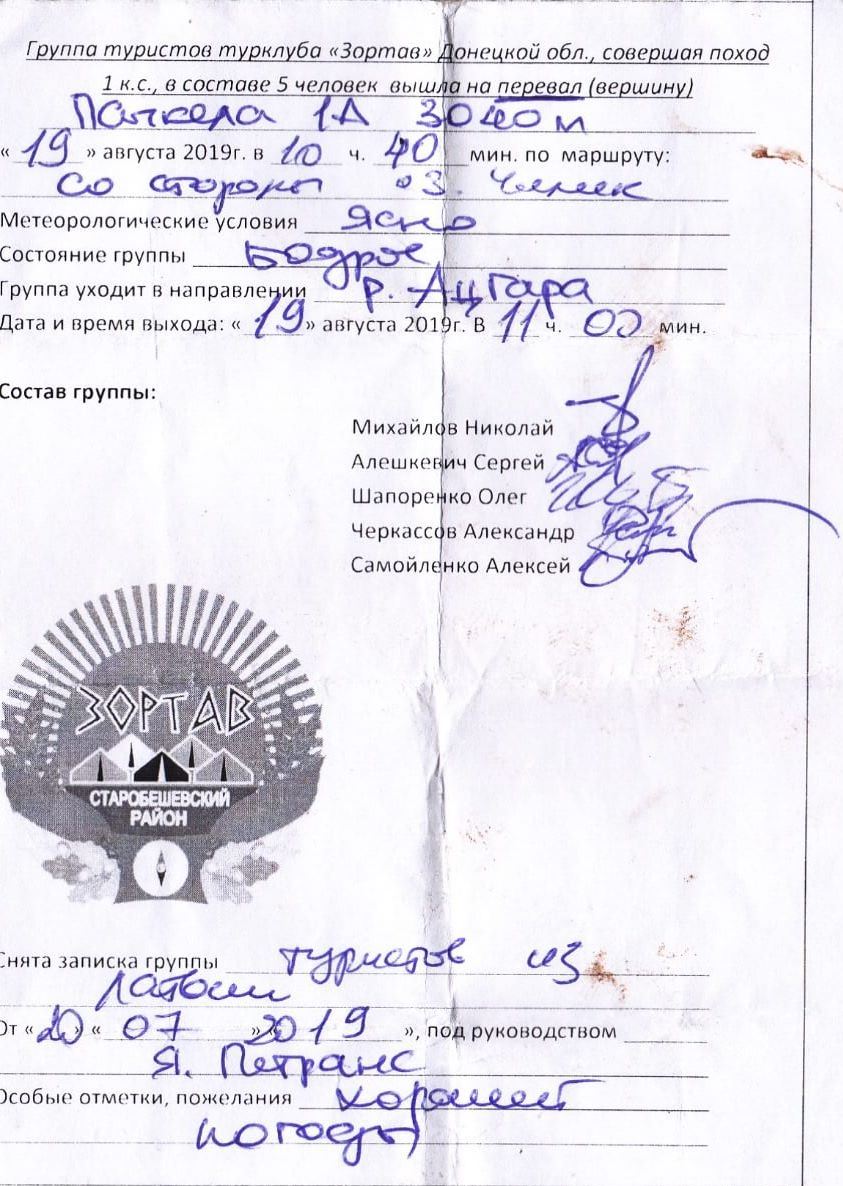 Группа туристов турклуба «Зортав» Донецкой обл., совершая поход
1 к.с., в составе 5 человек вышла на перевал (вершину)
1А 3040 м
« 19 » августа 2019г. в 10 ч. 40 мин. по маршруту:
со стороны оз. Чилик
Метеорологические условия Ясно
Состояние группы Бодрое
Группа уходит в направлении р. Ацгара
Дата и время выхода: « 19 » августа 2019г. В 11 ч. 00 мин.
Состав группы:
Михайлов Николай
Алешкевич Сергей
Шапоренко Олег
Черкассов Александр
Самойленко Алексей
ЗОРТАВ
СТАРОБЕШЕВСКИЙ
РАЙОН
Снята записка группы туристов из
Латвии
От « 20 » « 07 » 2019 », под руководством
Я. Петранс
Особые отметки, пожелания хорошей
погоды